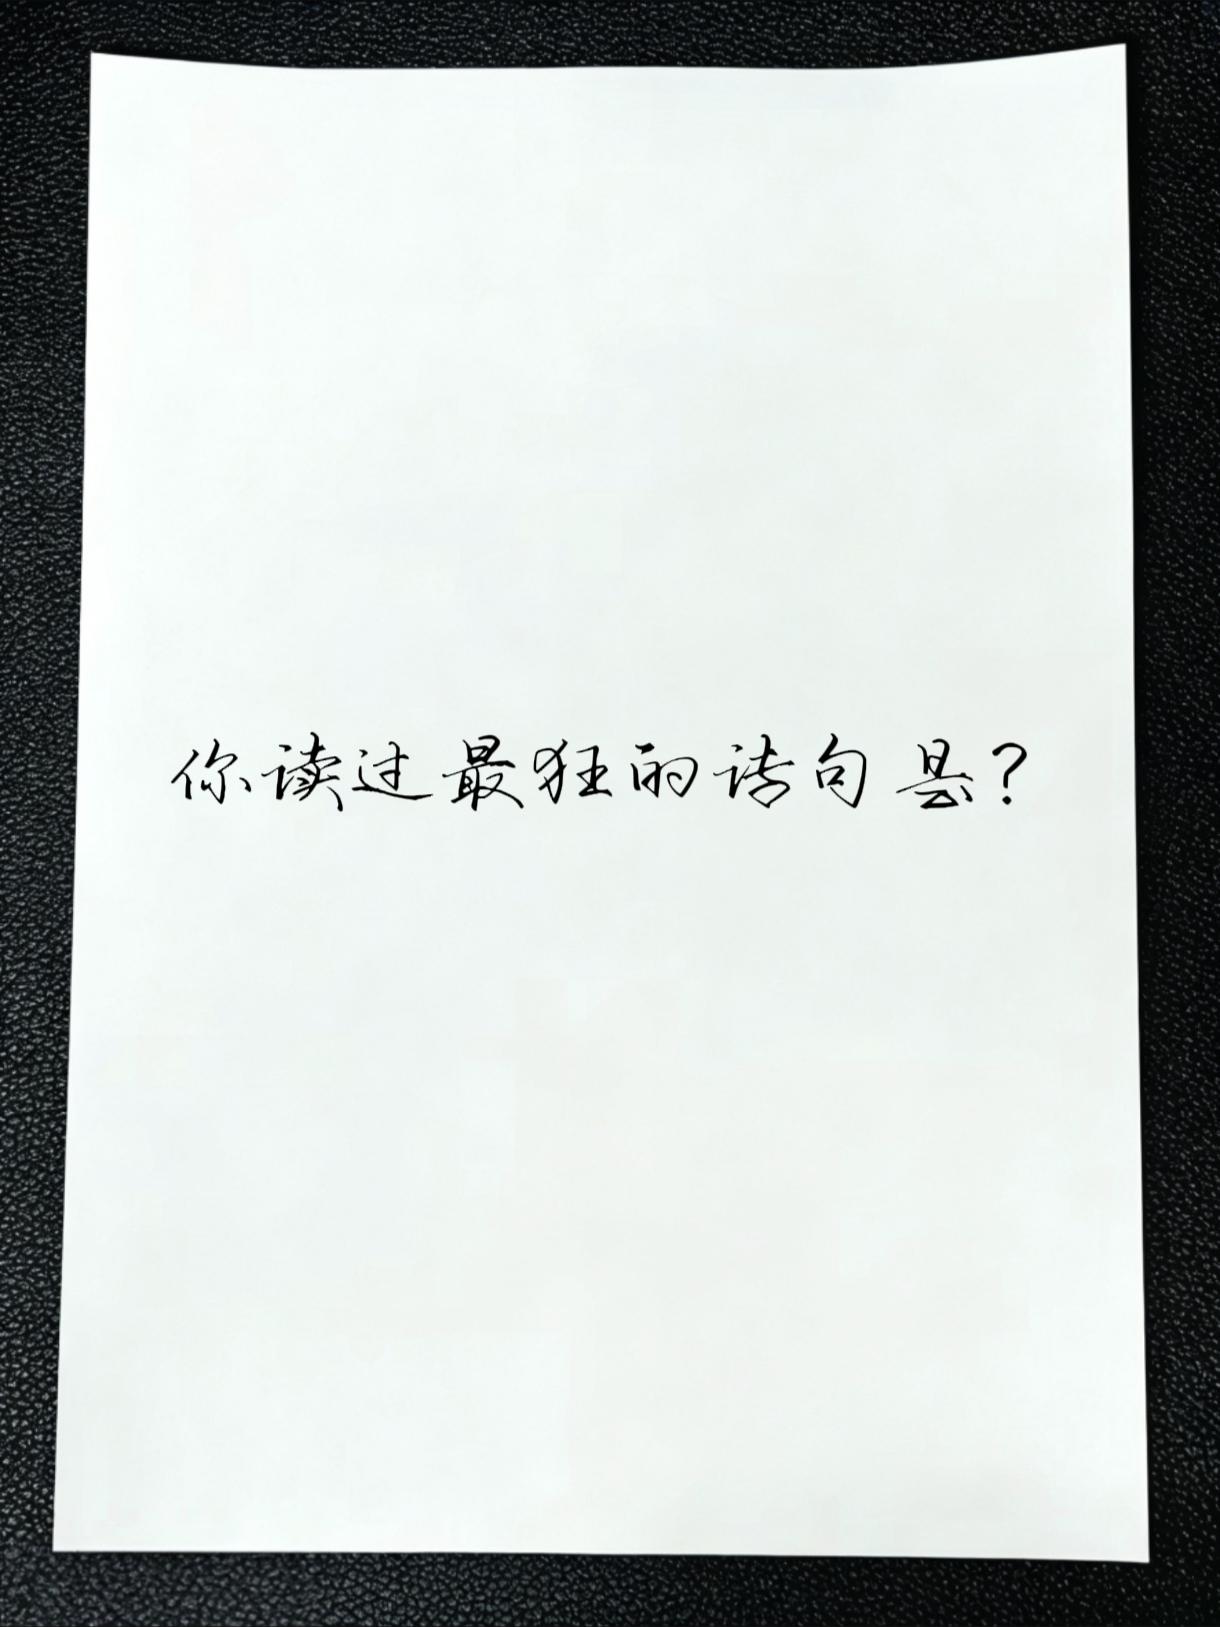 你读过最狂的诗句是?